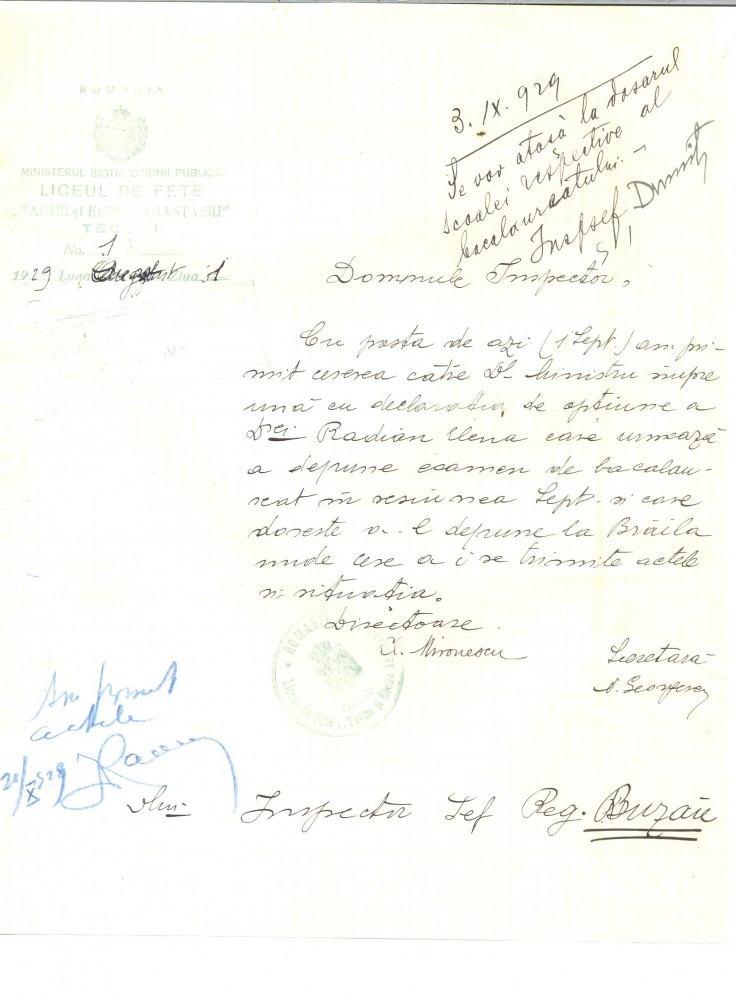 ROMANIA
MINISTERUL INSTRUCTIUNII PUBLICE
LICEUL DE FETE
„TACHE ȘI ELENA ANASTASIU”
TECUCI
No. 1
1929 Luna August Ziua 31
3. IX. 929
Se vor atașà la dosarul
scoalei respective al
bacalaureatului. –
Inspsef
Domnule Inspector,
Cu posta de azi (1 Sept.) am pri-
mit cererea catre Dl Ministru impre
ună cu declaratia de optiune a
Drei Radian Elena care urmează
a depune examen de bacalau-
reat in sesiunea Sept. si care
doreste a-l depune la Brăila
unde cere a i se trimite actele
si situatia.
Directoare
Mironescu
Secretară
N. Georgescu
ROMANIA
Liceul de Fete „Tache și Elena
Am primit
actele
Dlui Inspector Sef Reg. Buzău